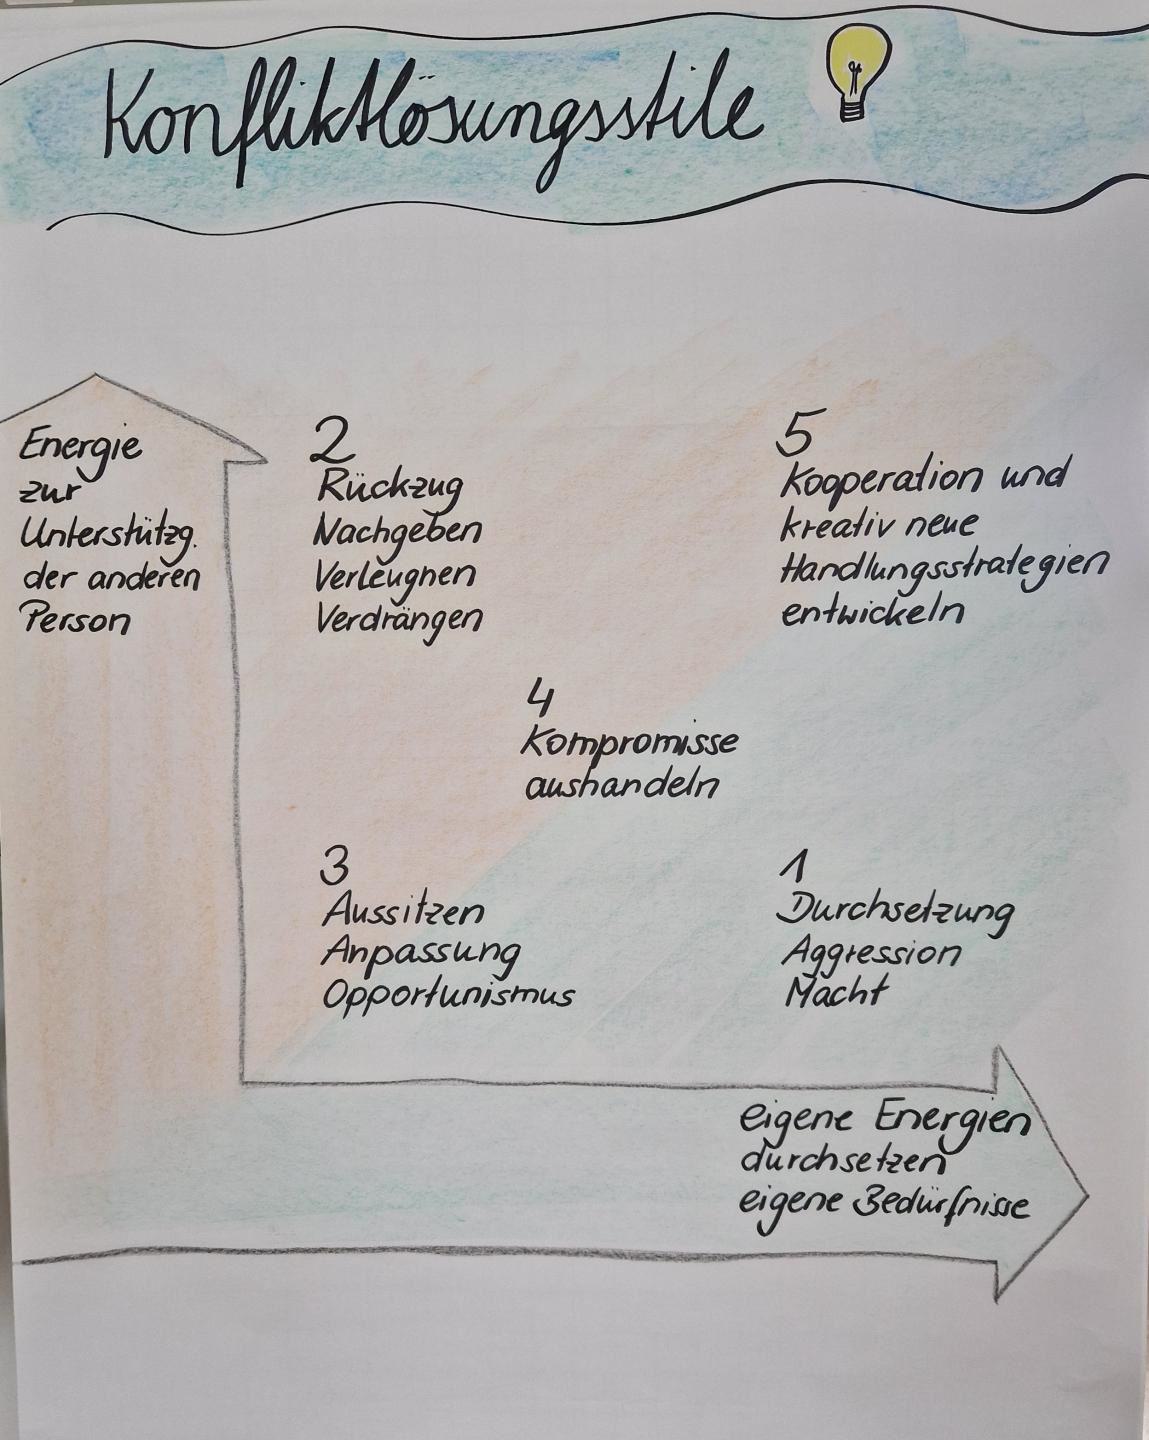 Konfliktlösungsstile
Energie
zur
Unterstützg.
der anderen
Person
2
Rückzug
Nachgeben
Verleugnen
Verdrängen
5
Kooperation und
kreativ neue
Handlungsstrategien
entwickeln
4
Kompromisse
aushandeln
3
Aussitzen
Anpassung
Opportunismus
1
Durchsetzung
Aggression
Macht
eigene Energien
durchsetzen
eigene Bedürfnisse